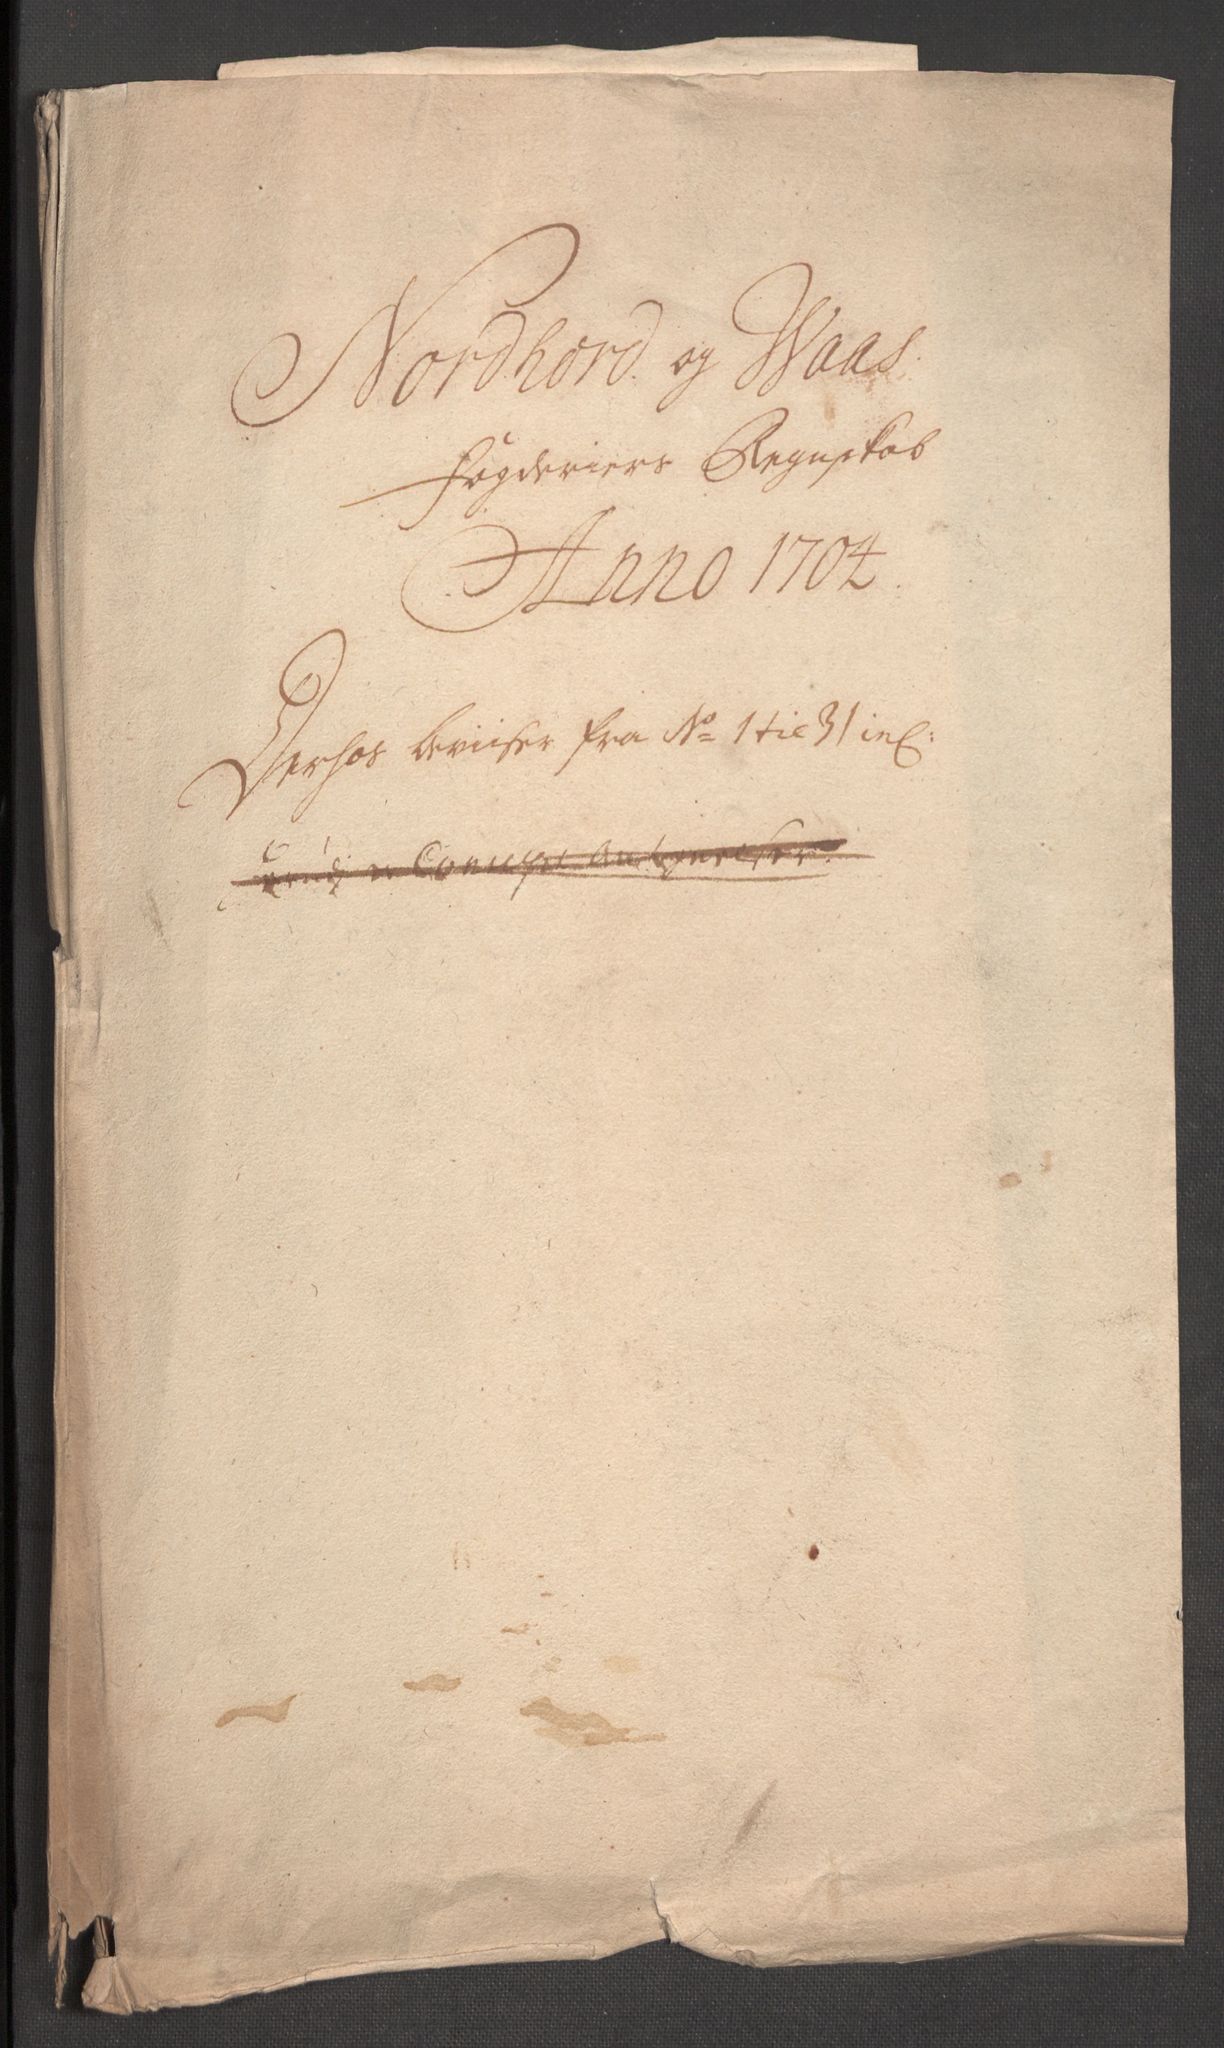 Nordhord og Waas
fogderiers Regnskab
Anno 1704
Derhos beviiser fra No 1 til 31 incl: